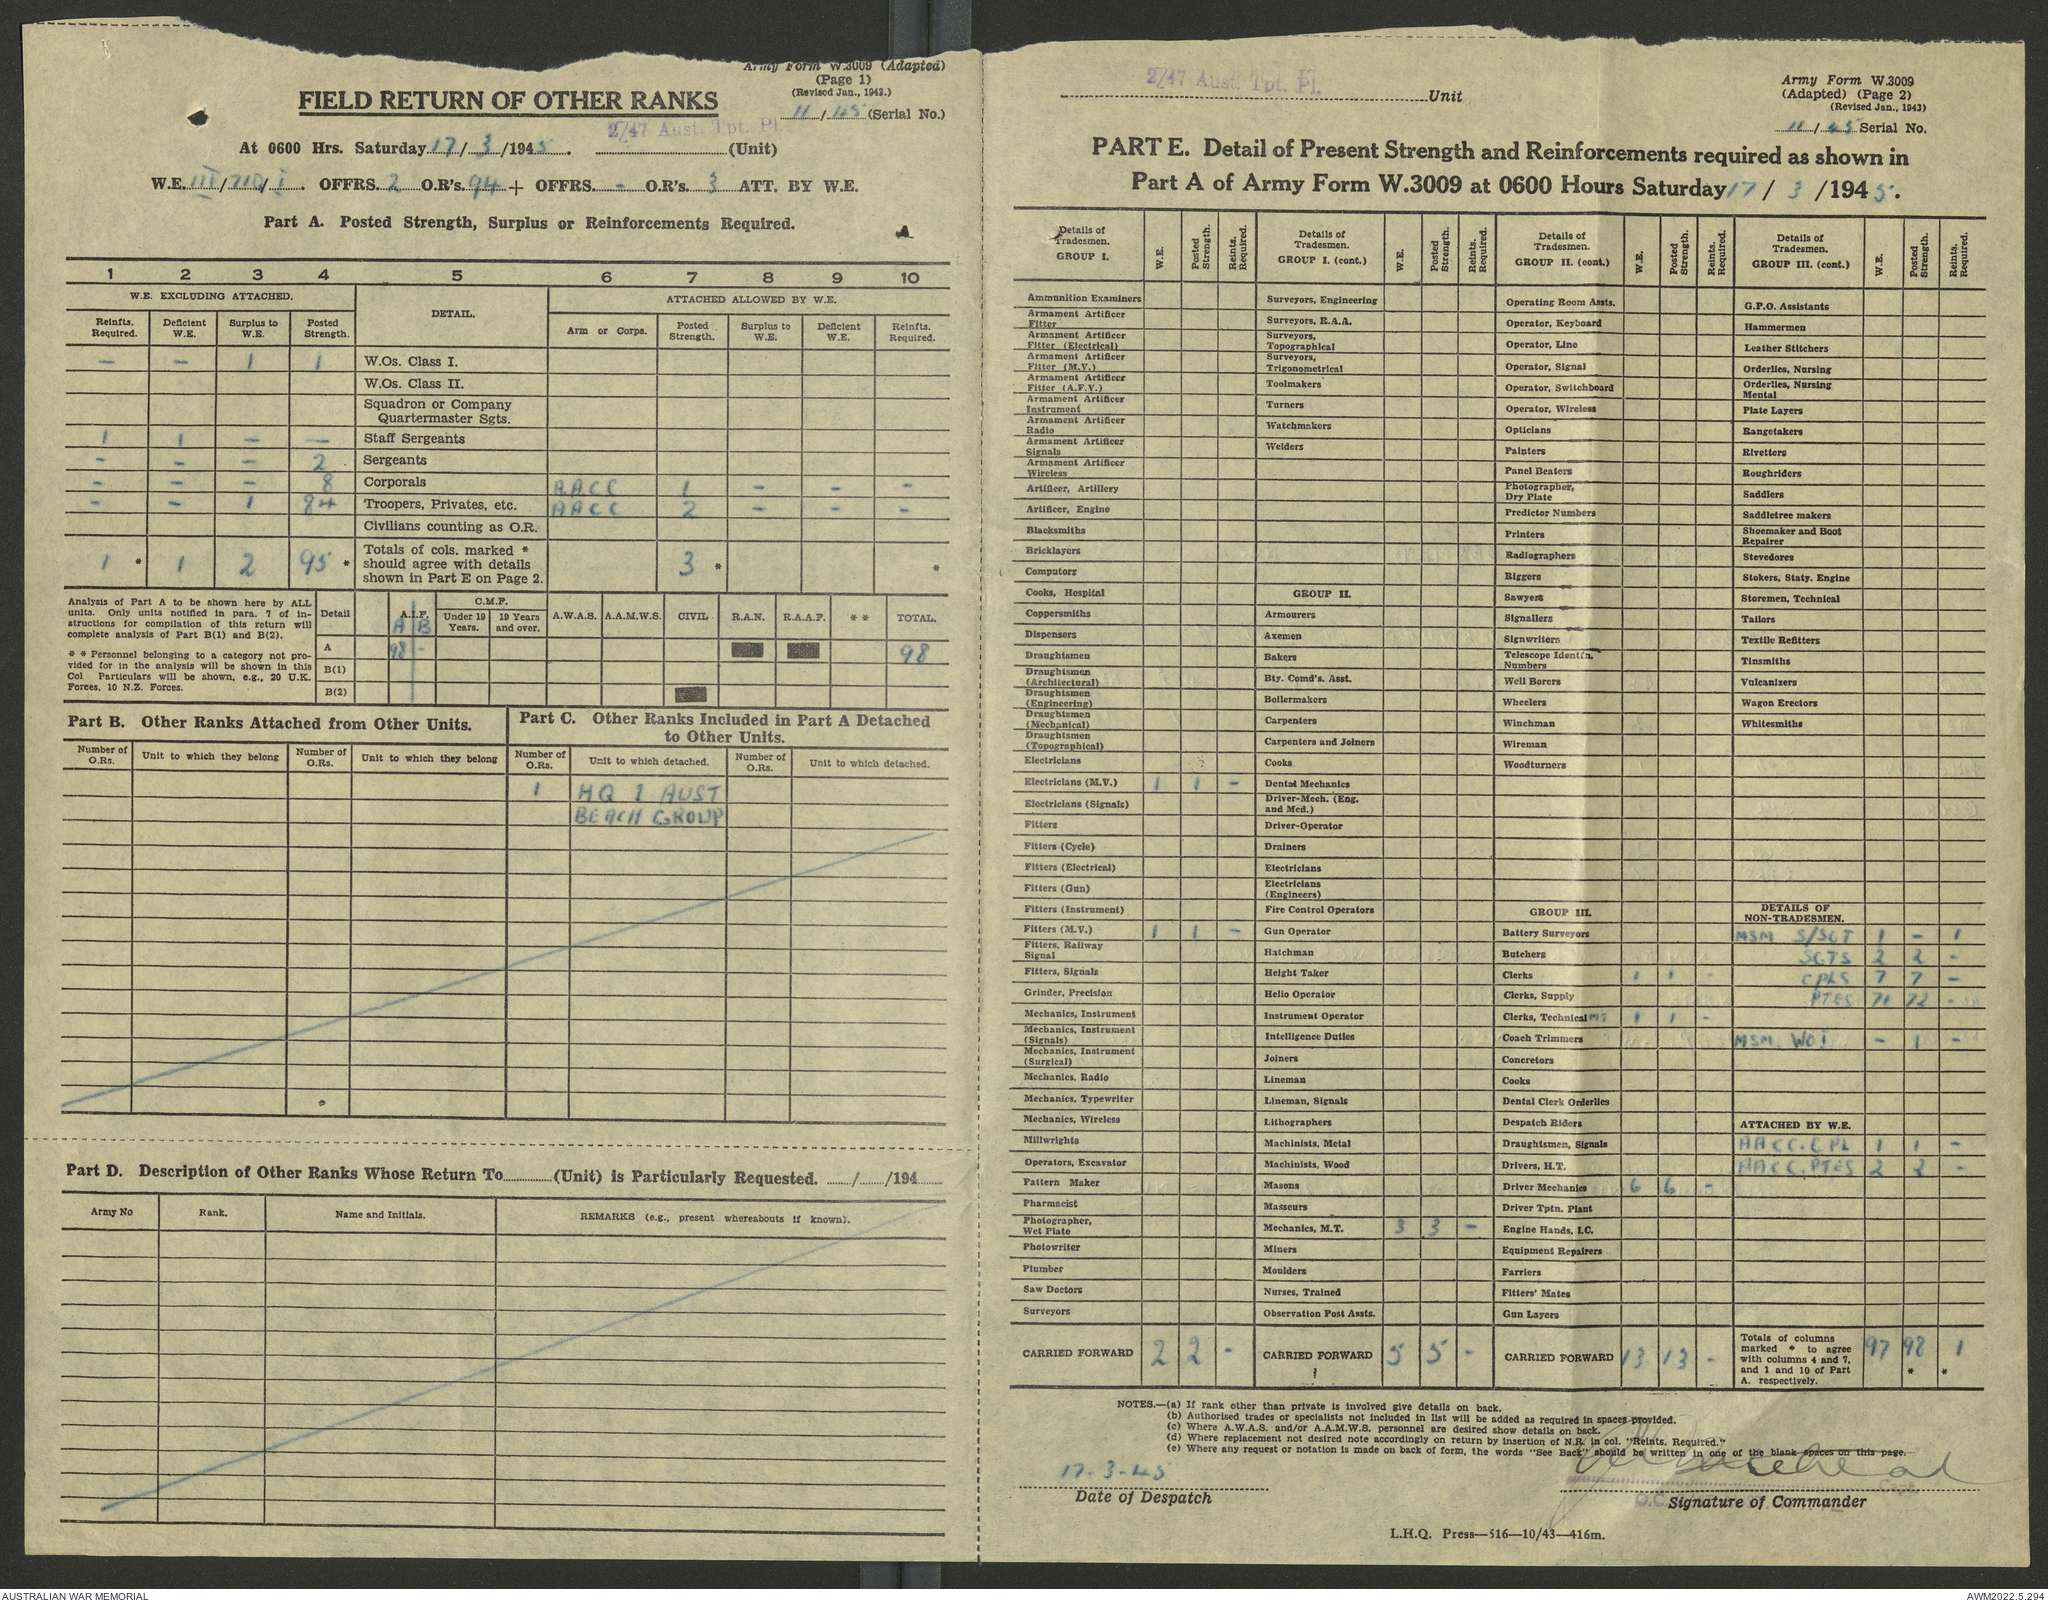 Army Form W.3009 (Adapted)
(Page 1)
(Revised Jan., 1943.)
FIELD RETURN OF OTHER RANKS
11/45 (Serial No.)
2/47 Aust. Tpt. Pl.
At 0600 Hrs. Saturday 17/3/1945. (Unit)
W.E. III/210/I. OFFRS. 2 O.R's. 94 + OFFRS. - O.R's. 3 ATT. BY W.E.
Part A. Posted Strength, Surplus or Reinforcements Required.
1 2 3 4 5 6 7 8 9 10
W.E. EXCLUDING ATTACHED. DETAIL. ATTACHED ALLOWED BY W.E.
Reinfts. Required. Deficient W.E. Surplus to W.E. Posted Strength. Arm or Corps. Posted Strength. Surplus to W.E. Deficient W.E. Reinfts. Required.
- - 1 1 W.Os. Class I.
W.Os. Class II.
Squadron or Company
Quartermaster Sgts.
1 1 - - Staff Sergeants
- - - 2 Sergeants
- - - 8 Corporals AACC 1 - - -
- - 1 84 Troopers, Privates, etc. AACC 2 - - -
Civilians counting as O.R.
1 * 1 2 95 * Totals of cols. marked * should agree with details shown in Part E on Page 2. 3 * *
Analysis of Part A to be shown here by ALL
units. Only units notified in para. 7 of in-
structions for compilation of this return will
complete analysis of Part B(1) and B(2).
* * Personnel belonging to a category not pro-
vided for in the analysis will be shown in this
Col Particulars will be shown, e.g., 20 U.K.
Forces, 10 N.Z. Forces.
Detail A.I.F. C.M.F. A.W.A.S. A.A.M.W.S. CIVIL R.A.N. R.A.A.F. * * TOTAL.
A B Under 19 Years. 19 Years and over.
A 98 - 98
B(1)
B(2)
Part B. Other Ranks Attached from Other Units.
Number of O.Rs. Unit to which they belong Number of O.Rs. Unit to which they belong
Part C. Other Ranks Included in Part A Detached
to Other Units.
Number of O.Rs. Unit to which detached. Number of O.Rs. Unit to which detached.
1 HQ 1 AUST
BEACH GROUP
Part D. Description of Other Ranks Whose Return To (Unit) is Particularly Requested. / /194
Army No Rank. Name and Initials. REMARKS (e.g., present whereabouts if known).
2/47 Aust. Tpt. Pl. Unit
Army Form W.3009
(Adapted) (Page 2)
(Revised Jan., 1943)
11/45 Serial No.
PART E. Detail of Present Strength and Reinforcements required as shown in
Part A of Army Form W.3009 at 0600 Hours Saturday 17/3/1945.
Details of Tradesmen. GROUP I. W.E. Posted Strength. Reints. Required.
Ammunition Examiners
Armament Artificer Fitter
Armament Artificer Fitter (Electrical)
Armament Artificer Fitter (M.V.)
Armament Artificer Fitter (A.F.V.)
Armament Artificer Instrument
Armament Artificer Radio
Armament Artificer Signals
Armament Artificer Wireless
Artificer, Artillery
Artificer, Engine
Blacksmiths
Bricklayers
Computors
Cooks, Hospital
Coppersmiths
Dispensers
Draughtsmen
Draughtsmen (Architectural)
Draughtsmen (Engineering)
Draughtsmen (Mechanical)
Draughtsmen (Topographical)
Electricians
Electricians (M.V.) 1 1 -
Electricians (Signals)
Fitters
Fitters (Cycle)
Fitters (Electrical)
Fitters (Gun)
Fitters (Instrument)
Fitters (M.V.) 1 1 -
Fitters, Railway Signal
Fitters, Signals
Grinder, Precision
Mechanics, Instrument
Mechanics, Instrument (Signals)
Mechanics, Instrument (Surgical)
Mechanics, Radio
Mechanics, Typewriter
Mechanics, Wireless
Millwrights
Operators, Excavator
Pattern Maker
Pharmacist
Photographer, Wet Plate
Photowriter
Plumber
Saw Doctors
Surveyors
CARRIED FORWARD 2 2 -
Details of Tradesmen. GROUP I. (cont.) W.E. Posted Strength. Reints. Required.
Surveyors, Engineering
Surveyors, R.A.A.
Surveyors, Topographical
Surveyors, Trigonometrical
Toolmakers
Turners
Watchmakers
Welders
GROUP II.
Armourers
Axemen
Bakers
Bty. Comd's. Asst.
Boilermakers
Carpenters
Carpenters and Joiners
Cooks
Dental Mechanics
Driver-Mech. (Eng. and Med.)
Driver-Operator
Drainers
Electricians
Electricians (Engineers)
Fire Control Operators
Gun Operator
Hatchman
Height Taker
Helio Operator
Instrument Operator
Intelligence Duties
Joiners
Lineman
Lineman, Signals
Lithographers
Machinists, Metal
Machinists, Wood
Masons
Masseurs
Mechanics, M.T. 3 3 -
Miners
Moulders
Nurses, Trained
Observation Post Assts.
CARRIED FORWARD 5 5 -
Details of Tradesmen. GROUP II. (cont.) W.E. Posted Strength. Reints. Required.
Operating Room Assts.
Operator, Keyboard
Operator, Line
Operator, Signal
Operator, Switchboard
Operator, Wireless
Opticians
Painters
Panel Beaters
Photographer, Dry Plate
Predictor Numbers
Printers
Radiographers
Riggers
Sawyers
Signallers
Signwriters
Telescope Identfn. Numbers
Well Borers
Wheelers
Winchman
Wireman
Woodturners
GROUP III.
Battery Surveyors
Butchers
Clerks 1 1 -
Clerks, Supply
Clerks, Technical MT 1 1 -
Coach Trimmers
Concretors
Cooks
Dental Clerk Orderlies
Despatch Riders
Draughtsmen, Signals
Drivers, H.T.
Driver Mechanics 6 6 -
Driver Tptn. Plant
Engine Hands, I.C.
Equipment Repairers
Farriers
Fitters' Mates
Gun Layers
CARRIED FORWARD 13 13 -
Details of Tradesmen. GROUP III. (cont.) W.E. Posted Strength. Reints. Required.
G.P.O. Assistants
Hammermen
Leather Stitchers
Orderlies, Nursing
Orderlies, Nursing Mental
Plate Layers
Rangetakers
Rivetters
Roughriders
Saddlers
Saddletree makers
Shoemaker and Boot Repairer
Stevedores
Stokers, Staty. Engine
Storemen, Technical
Tailors
Textile Refitters
Tinsmiths
Vulcanizers
Wagon Erectors
Whitesmiths
DETAILS OF NON-TRADESMEN.
MSM S/SGT 1 - 1
SGTS 2 2 -
CPLS 7 7 -
PTES 71 72 -
MSM. WO I - 1 -
ATTACHED BY W.E.
AACC. CPL 1 1 -
AACC. PTES 2 2 -
Totals of columns marked * to agree with columns 4 and 7, and 1 and 10 of Part A. respectively. 97 98 * 1 *
NOTES.—(a) If rank other than private is involved give details on back.
(b) Authorised trades or specialists not included in list will be added as required in spaces provided.
(c) Where A.W.A.S. and/or A.A.M.W.S. personnel are desired show details on back.
(d) Where replacement not desired note accordingly on return by insertion of N.R. in col. "Reints. Required."
(e) Where any request or notation is made on back of form, the words "See Back" should be written in one of the blank spaces on this page.
17-3-45
Date of Despatch
Signature of Commander
L.H.Q. Press—516—10/43—416m.
AUSTRALIAN WAR MEMORIAL
AWM2022.5.294